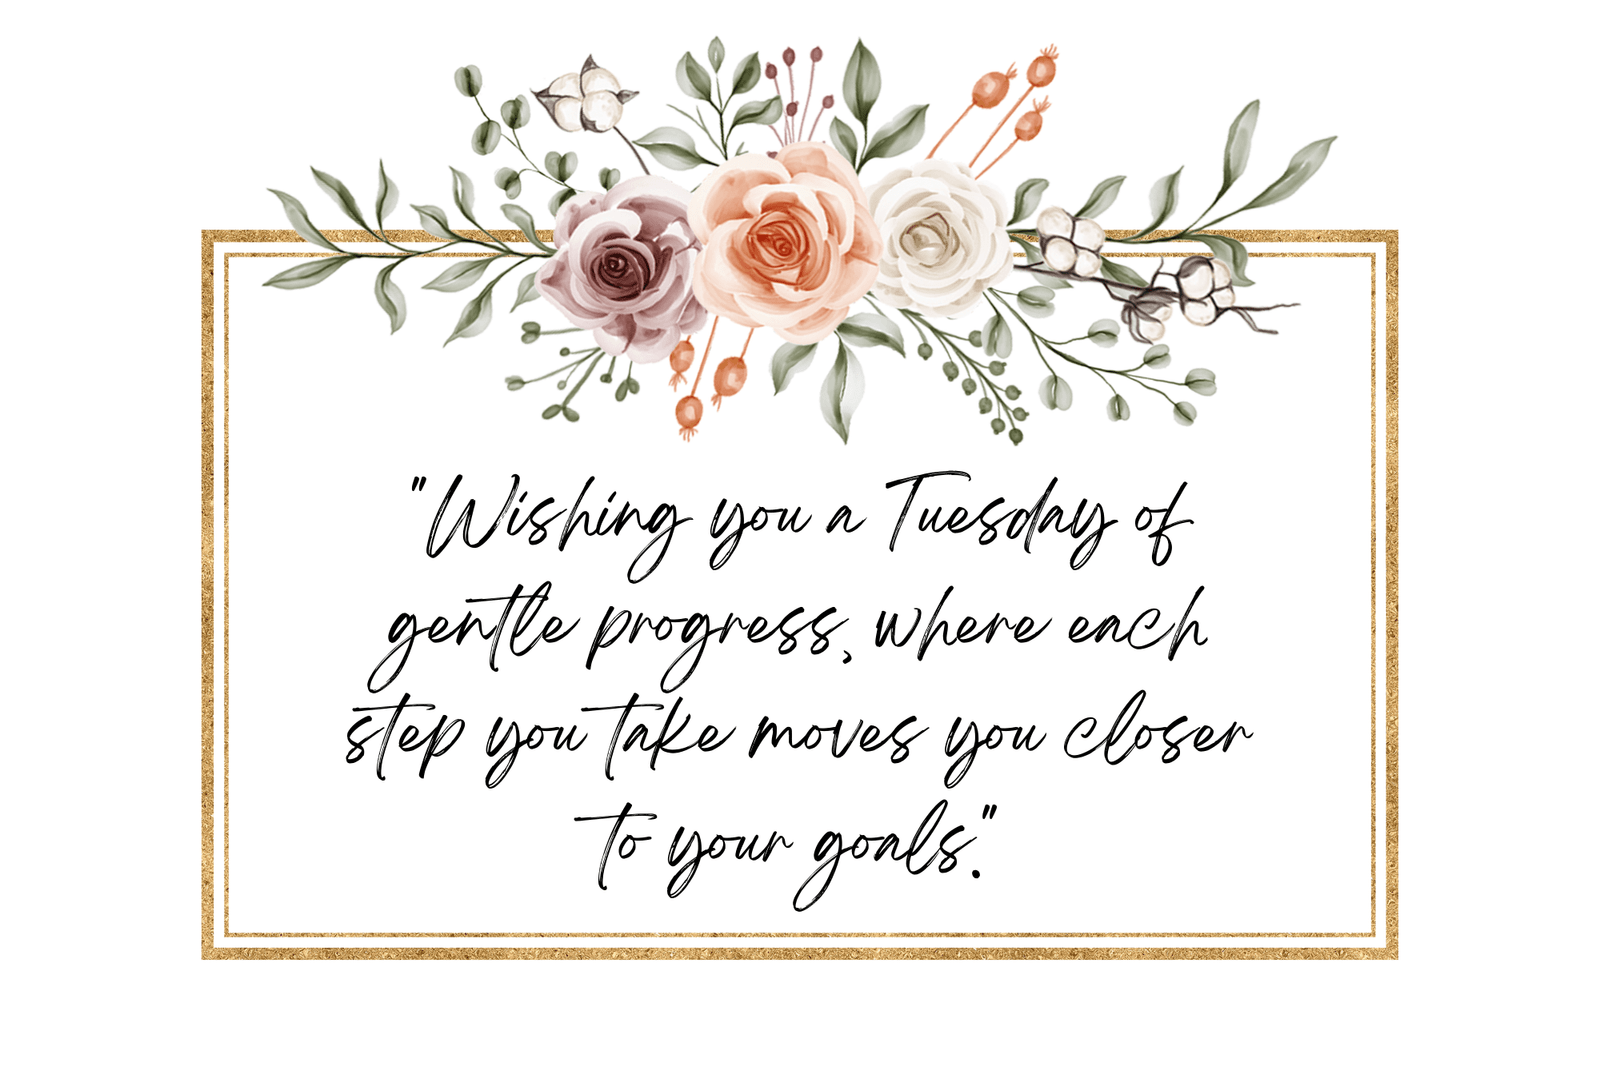 "Wishing you a Tuesday of
gentle progress, where each
step you take moves you closer
to your goals."